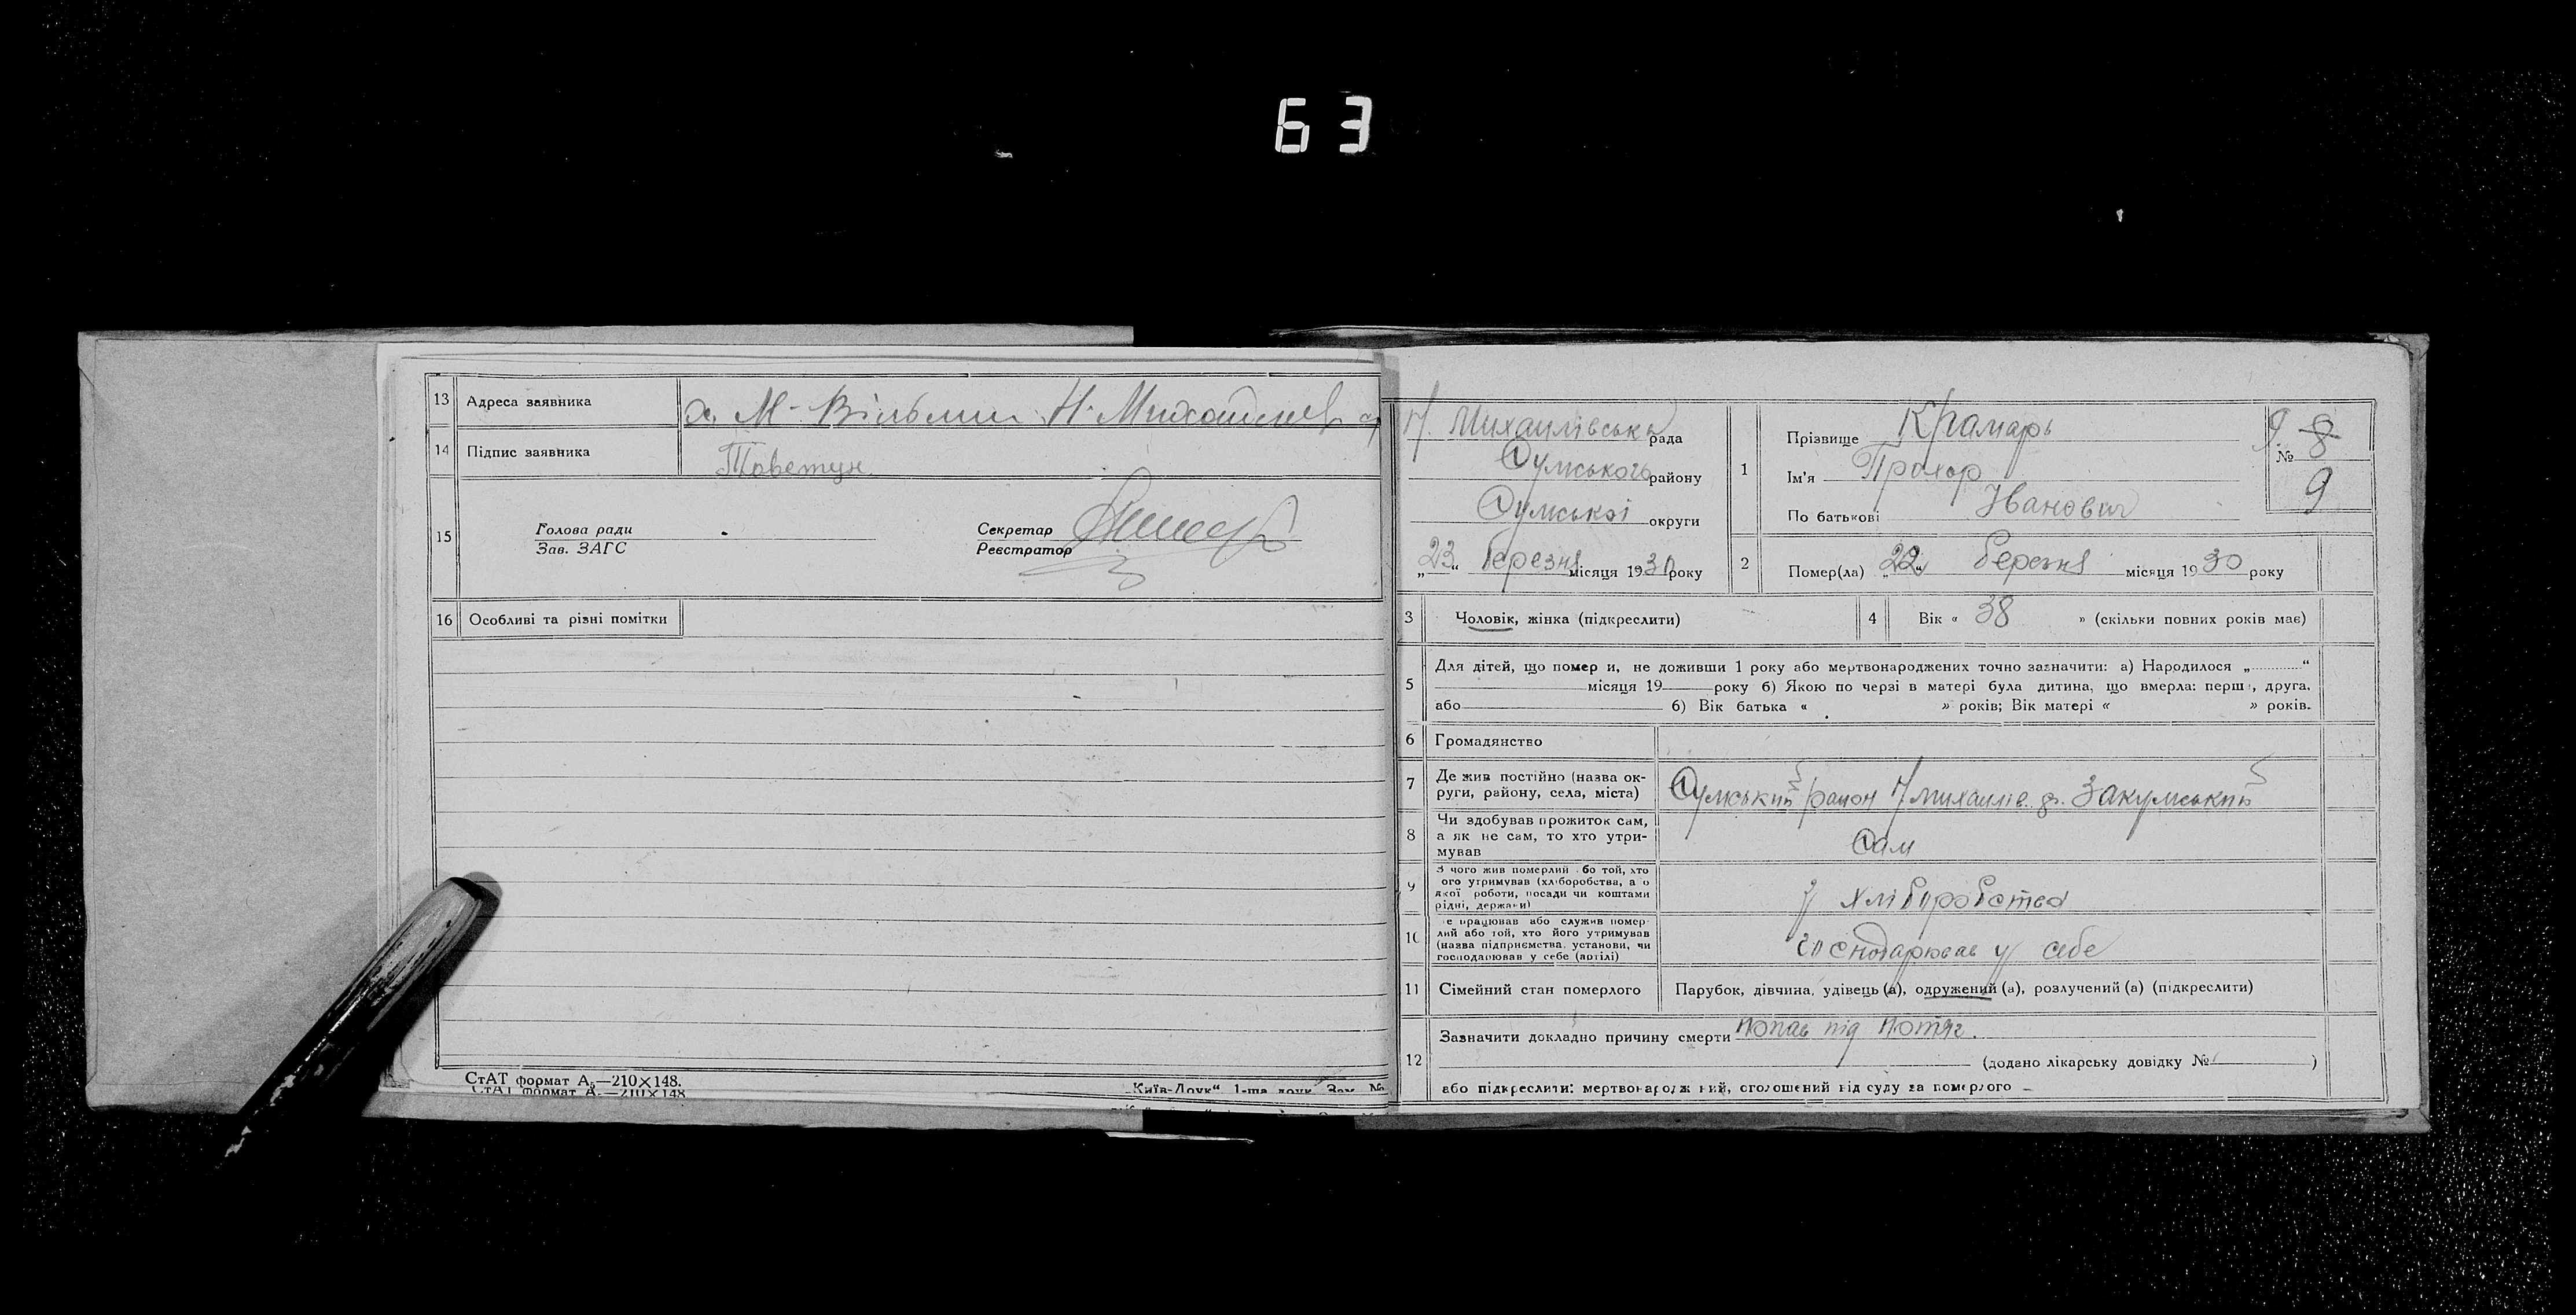 63
13 Адреса заявника х. М-Вільми Н-Михайлів
14 Підпис заявника
15 Голова ради Зав. ЗАГС Секретар Реєстратор
16 Особливі та різні помітки
СтАТ формат А₅—210×148.
СтАТ формат А₅—210×148
„Київ-Друк“ 1-ша друк. Зам. №
Н. Михайлівська рада
Сумського району
Сумської округи
„23“ березня місяця 1930 року
1 Прізвище Крамарь
Ім'я Прохор
По батькові Іванович
9. 8
№ 9
2 Помер(ла) „22“ березня місяця 1930 року
3 Чоловік, жінка (підкреслити)
4 Вік « 38 » (скільки повних років має)
5 Для дітей, що помер и, не доживши 1 року або мертвонароджених точно зазначити: а) Народилося „ “
місяця 19 року б) Якою по черзі в матері була дитина, що вмерла: перш, друга,
або б) Вік батька « » років; Вік матері « » років.
6 Громадянство
7 Де жив постійно (назва округи, району, села, міста) Сумський район Н михайлів. х. Закумський
8 Чи здобував прожиток сам, а як не сам, то хто утримував Сам
9 З чого жив померлий або той, хто його утримував (хліборобства, а о якої роботи, посади чи коштами рідні, держави) З хліборобства
10 е працював або служив померлий або той, хто його утримував (назва підприємства, установи, чи господарював у себе (артілі) господарював у себе
11 Сімейний стан померлого Парубок, дівчина, удівець (а), одружений (а), розлучений (а) (підкреслити)
12 Зазначити докладно причину смерти попав під потяг.
(додано лікарську довідку № )
або підкреслити: мертвонародж ний, оголошений від суду за померлого